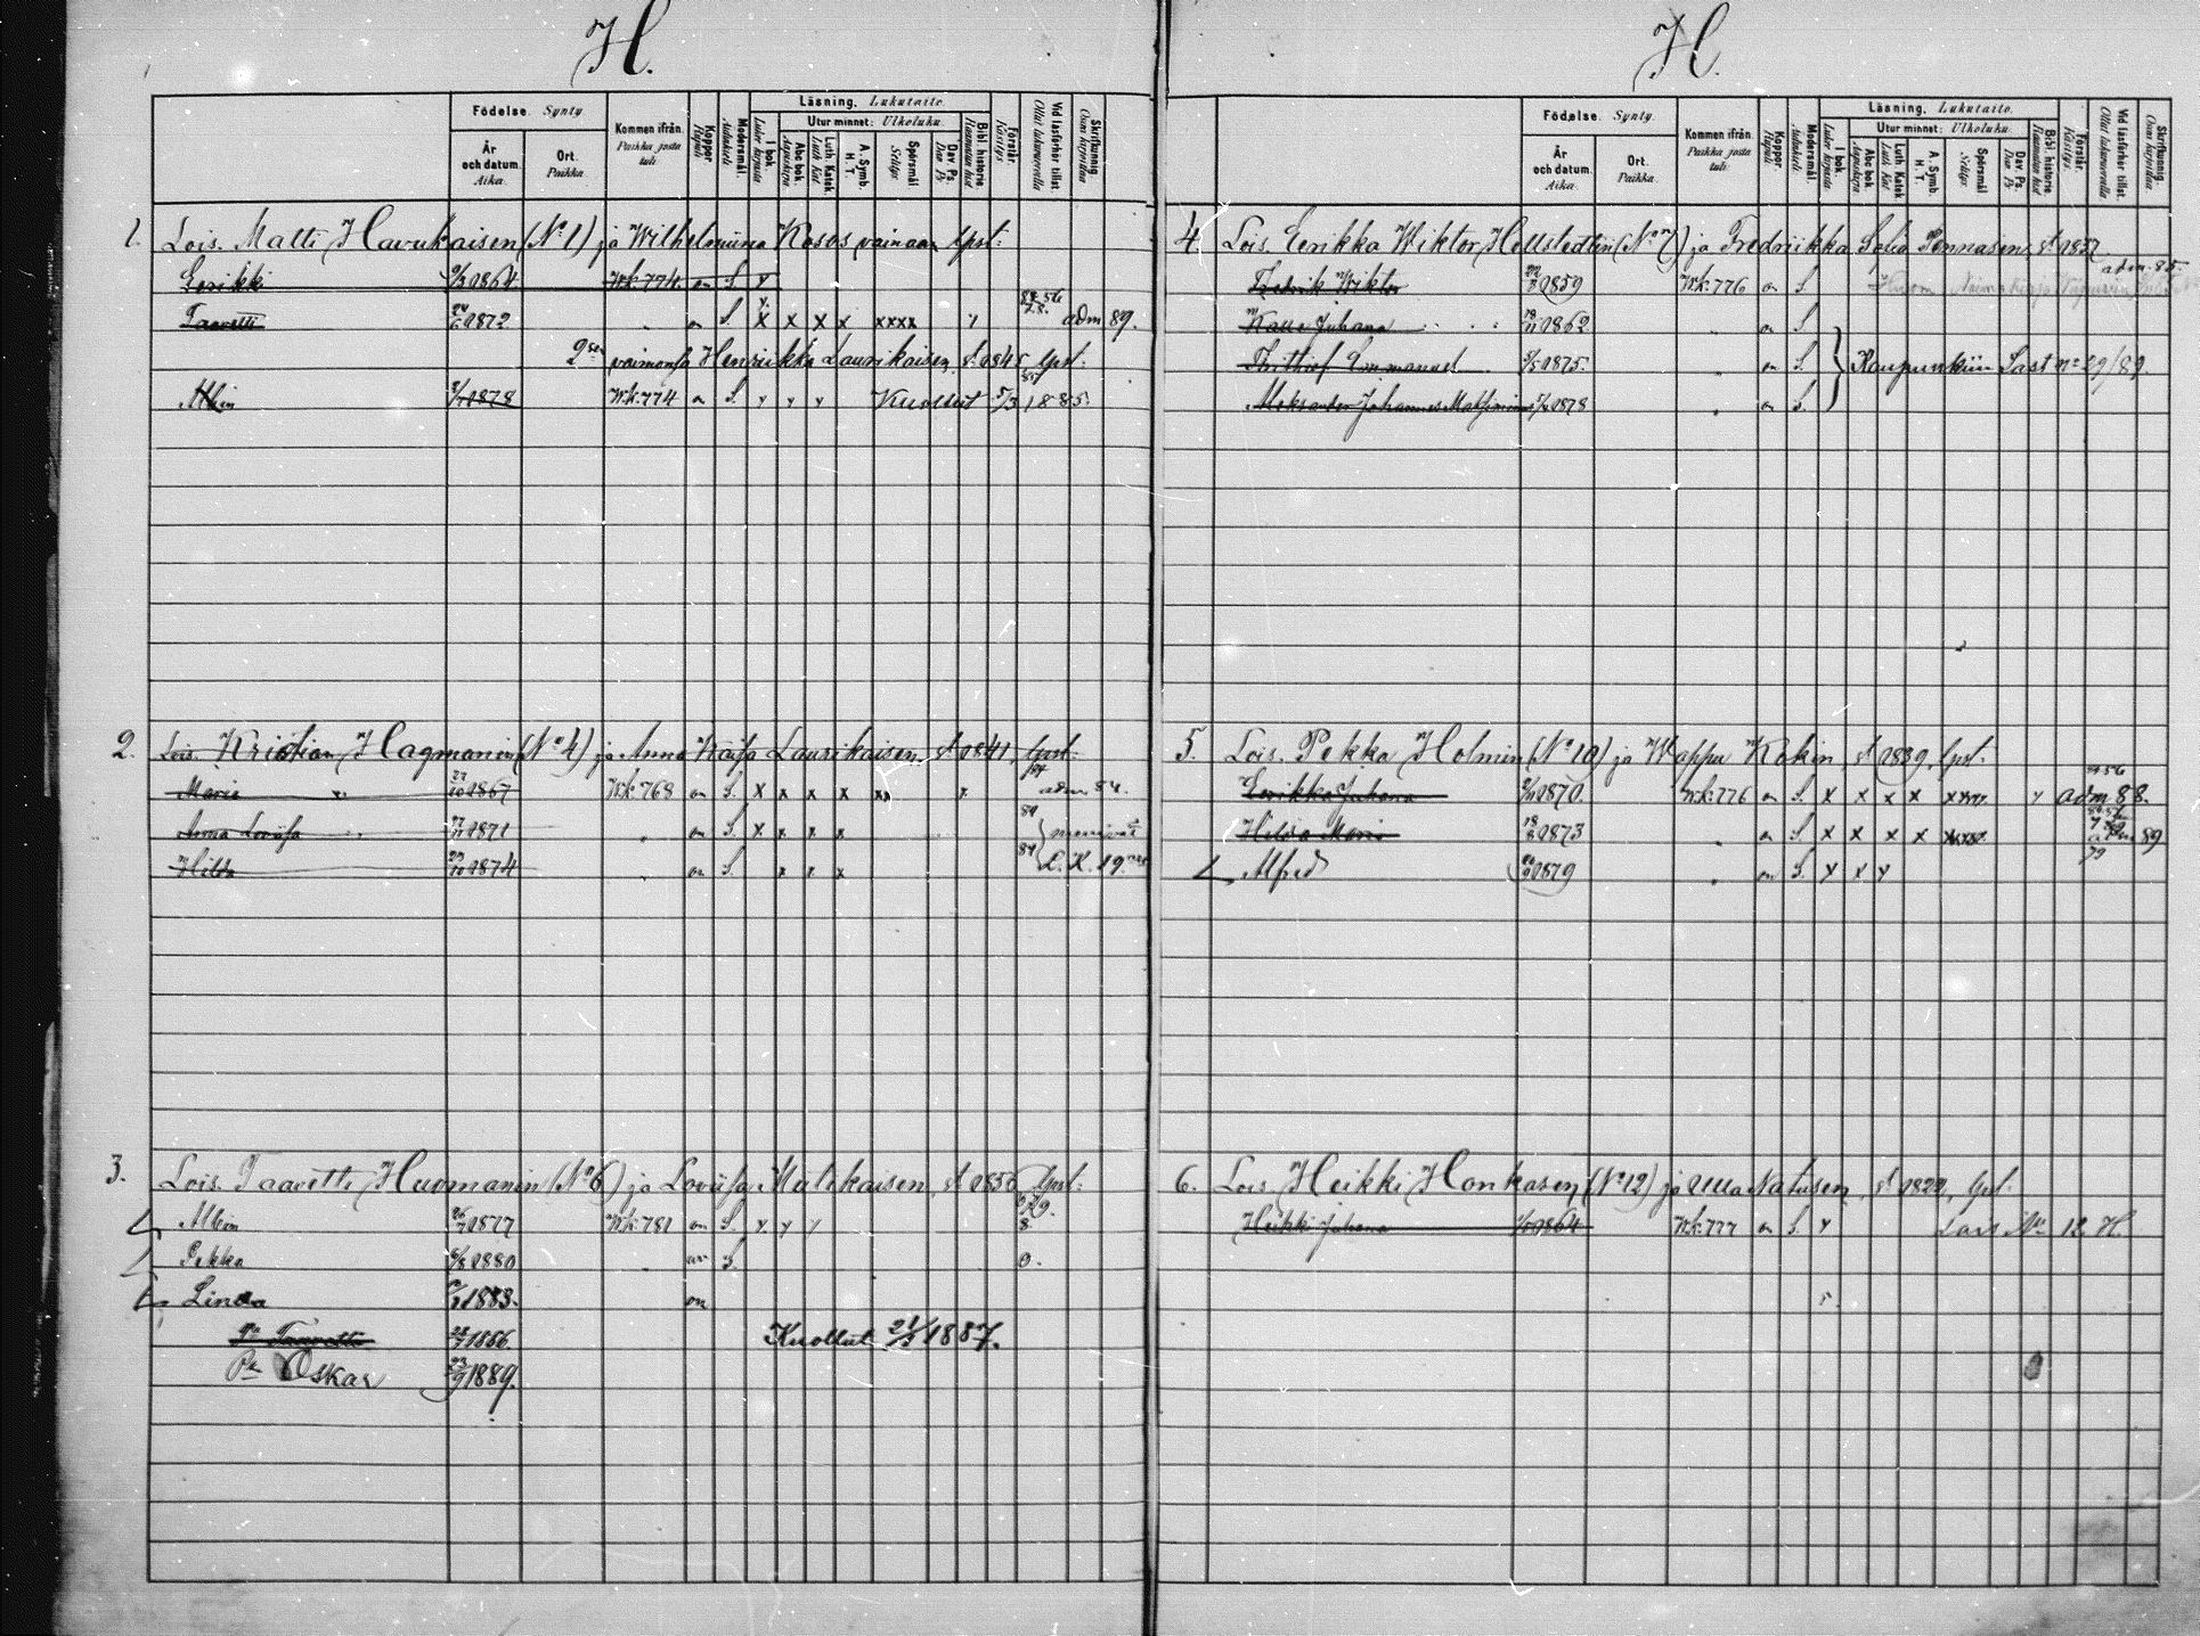 H.
Födelse. Synty
Kommen ifrån. Paikka josta tuli.
Koppor. Rupuli
Modersmål. Äidinkieli
Läsning. Lukutaito.
I bok. Lukee kirjasta
Utur minnet: Ulkoluku.
Abc bok Aapiskirja
Luth. Katek. Luth Kat.
A. Symb. H. T.
Spörsmål Selitys
Dav. Ps. Dav. Ps
Bibl. historie Raamatun hist.
Förstår. Käsitys
Vid läsförhör tillst. Ollut lukuvuorolla
Skrifkunnig. Osaa kirjoittaa
År och datum. Aika.
Ort. Paikka.
1. Lois. Matti Havukaisen (No 1) ja Wilhelmiina Kosos vainaan lpst:
Eerikki 1864 Wk. 774. on S. x
Taavetti 1872 " on S. x x x x xxxx x adm 89.
2sen vaimonsa Henriikka Laurikaisen, st. 1845 lpst:
Albin 1878 Wk 774 on S. x x x Kuollut 5/3 1885.
2. Lois. Kristian Hagmanin (No 4) ja Anna Kaisa Laurikaisen, st. 1841, lpst:
Maria 27/10 1867 Wk. 768 on S. x x x x xx x adm. 84.
Anna Loviisa 1871 " on S. x x x x 84 menivät
Hilda 1874 " on S. x x x 84 L. K. 19
3. Lois. Taavetti Huomanin (No 6) ja Loviisa Mulikaisen, st. 1856 lpst:
Albin 26/7 1877 Wk. 781 on S. x y y 8.
Pekka 6/8 1880 " on S. 0.
Linda 1883. on
Pa Taavetti 1886. Kuollut 21/3 1887.
Pa Oskar 23/9 1889.
H.
Födelse. Synty.
Kommen ifrån. Paikka josta tuli.
Koppor. Rupuli
Modersmål. Äidinkieli
Läsning. Lukutaito.
I bok. Lukee kirjasta
Utur minnet: Ulkoluku.
Abc bok Aapiskirja
Luth. Katek. Luth Kat.
A. Symb. H. T.
Spörsmål Selitys.
Dav. Ps. Dav. Ps
Bibl. historie Raamatun hist.
Förstår. Käsitys.
Vid läsförhör tillst. Ollut lukuvuorolla
Skrifkunnig. Osaa kirjoittaa.
År och datum. Aika.
Ort. Paikka.
4. Lois. Eerikka Wiktor Hellstedtin (No 7) ja Fredriikka Sofia Pennasen, st. 1837
Fredrik Wiktor 1859 Wk. 776 on S adm. 85.
Kalle Juhana 1862 " on S
Frithiof Emmanuel 1875. " on S. Kaupunkiin Last No 29/89.
Aleksander Johannes 1878 " on S.
5. Lois. Pekka Holmin (No 10) ja Wappu Kokin, st. 1839, lpst.
Eerikka Juhana 1870. Wk. 776 on S. x x x x xxxx y adm 88.
Hilda Maria 1873 " on S. x x x x xxxx adm 89
Alfred 1879 " on S. y x y
6. Lois. Heikki Honkasen (No 12) ja Ulla Natusen, st. 1822, lpst.
Heikki Juhana 1864 Wk. 777 on S. y Lais No 12. H.